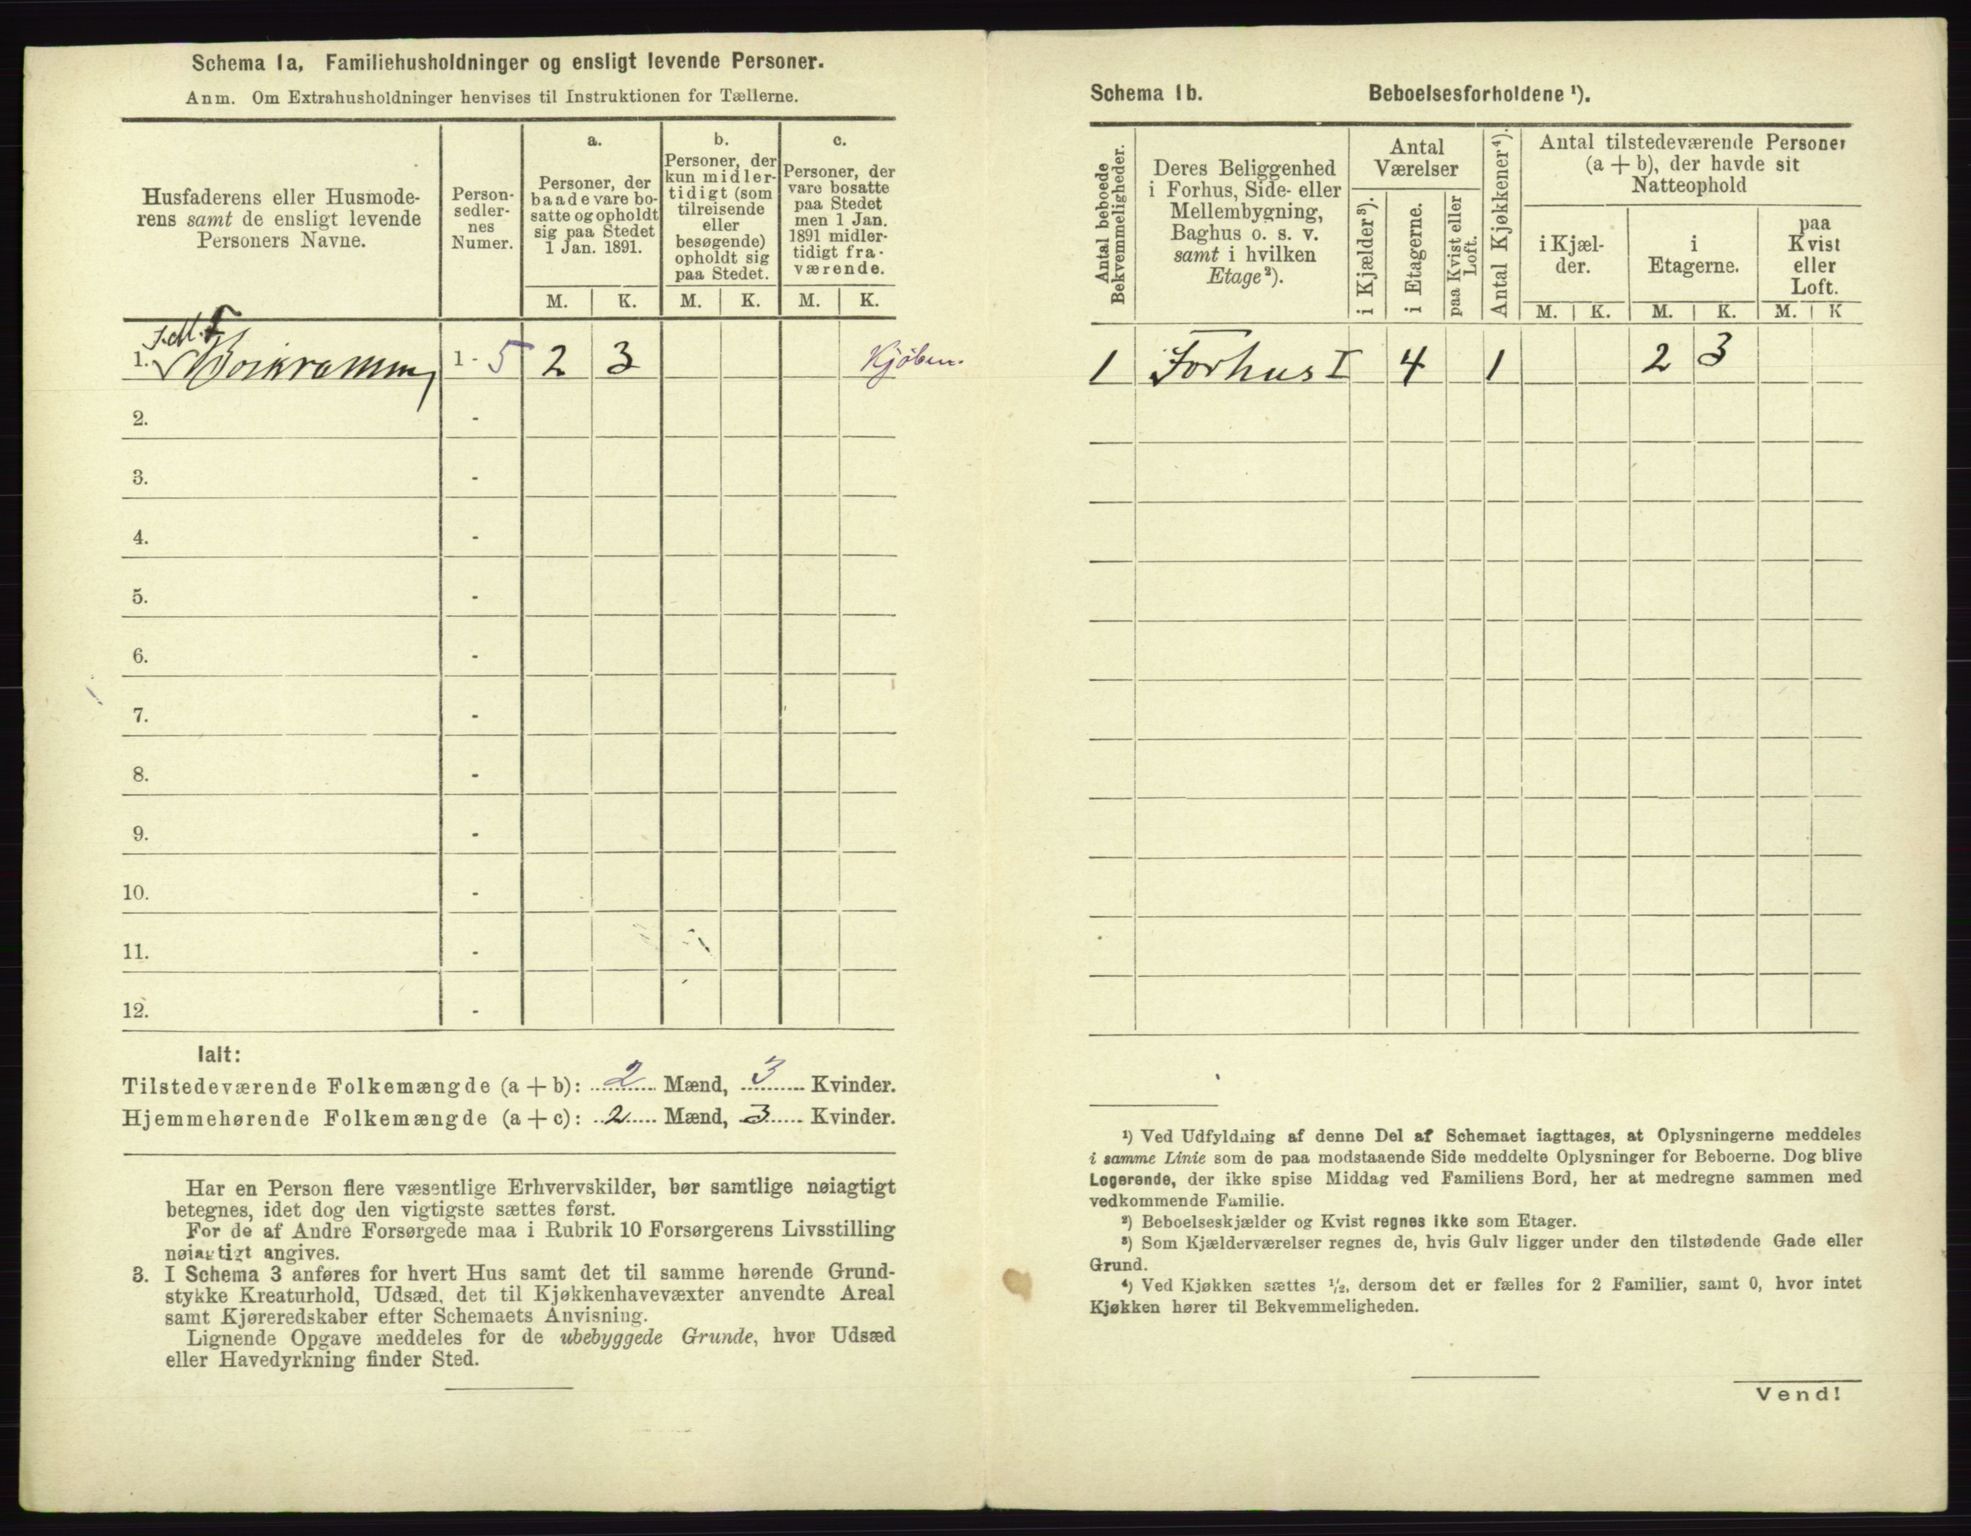 Schema 1a, Familiehusholdninger og ensligt levende Personer.
Anm. Om Extrahusholdninger henvises til Instruktionen for Tællerne.
Husfaderens eller Husmode-
rens samt de ensligt levende
Personers Navne.
Person-
sedler-
nes
Numer.
a.
Personer, der
baade vare bo-
satte og opholdt
sig paa Stedet
1 Jan. 1891.
b.
Personer, der
kun midler-
tidigt (som
tilreisende
eller
besøgende)
opholdt sig
paa Stedet.
c.
Personer, der
vare bosatte
paa Stedet
men 1 Jan.
1891 midler-
tidigt fra-
værende.
M. K. M. K. M. K.
1. 1 - 5 2 3
2. -
3. -
4. -
5. -
6. -
7. -
8. -
9. -
10. -
11. -
12. -
Ialt:
Tilstedeværende Folkemængde (a + b): 2 Mænd, 3 Kvinder.
Hjemmehørende Folkemængde (a + c): 2 Mænd, 3 Kvinder.
Har en Person flere væsentlige Erhvervskilder, bør samtlige nøiagtigt
betegnes, idet dog den vigtigste sættes først.
For de af Andre Forsørgede maa i Rubrik 10 Forsørgerens Livsstilling
nøiagtigt angives.
3. I Schema 3 anføres for hvert Hus samt det til samme hørende Grund-
stykke Kreaturhold, Udsæd, det til Kjøkkenhavevæxter anvendte Areal
samt Kjøreredskaber efter Schemaets Anvisning.
Lignende Opgave meddeles for de ubebyggede Grunde, hvor Udsæd
eller Havedyrkning finder Sted.
Schema 1b. Beboelsesforholdene ¹).
Antal beboede
Bekvemmeligheder.
Deres Beliggenhed
i Forhus, Side- eller
Mellembygning,
Baghus o. s. v.
samt i hvilken
Etage²).
Antal
Værelser
i Kjælder³).
i Etagerne.
paa Kvist eller
Loft.
Antal Kjøkkener⁴).
Antal tilstedeværende Personer
(a + b), der havde sit
Natteophold
i Kjæl-
der.
i
Etagerne.
paa
Kvist
eller
Loft.
M. K. M. K. M. K
1 Forhus I 4 1 2 3
¹) Ved Udfyldning af denne Del af Schemaet iagttages, at Oplysningerne meddeles
i samme Linie som de paa modstaaende Side meddelte Oplysninger for Beboerne. Dog blive
Logerende, der ikke spise Middag ved Familiens Bord, her at medregne sammen med
vedkommende Familie.
²) Beboelseskjælder og Kvist regnes ikke som Etager.
³) Som Kjælderværelser regnes de, hvis Gulv ligger under den tilstødende Gade eller
Grund.
⁴) Ved Kjøkken sættes ½, dersom det er fælles for 2 Familier, samt 0, hvor intet
Kjøkken hører til Bekvemmeligheden.
Vend!